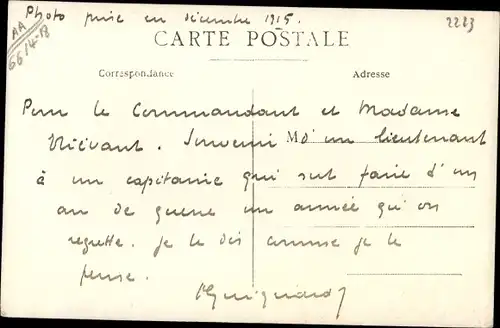 Photo prise en décembre 1915.
2223
AA
GG 14-18
CARTE POSTALE
Correspondance
Adresse
Pour le Commandant et Madame
Souvenir d'un lieutenant
M
à un capitaine qui sut faire d'un
an de guerre un année qu'on
regrette. je le dis comme je le
pense.
Guignard